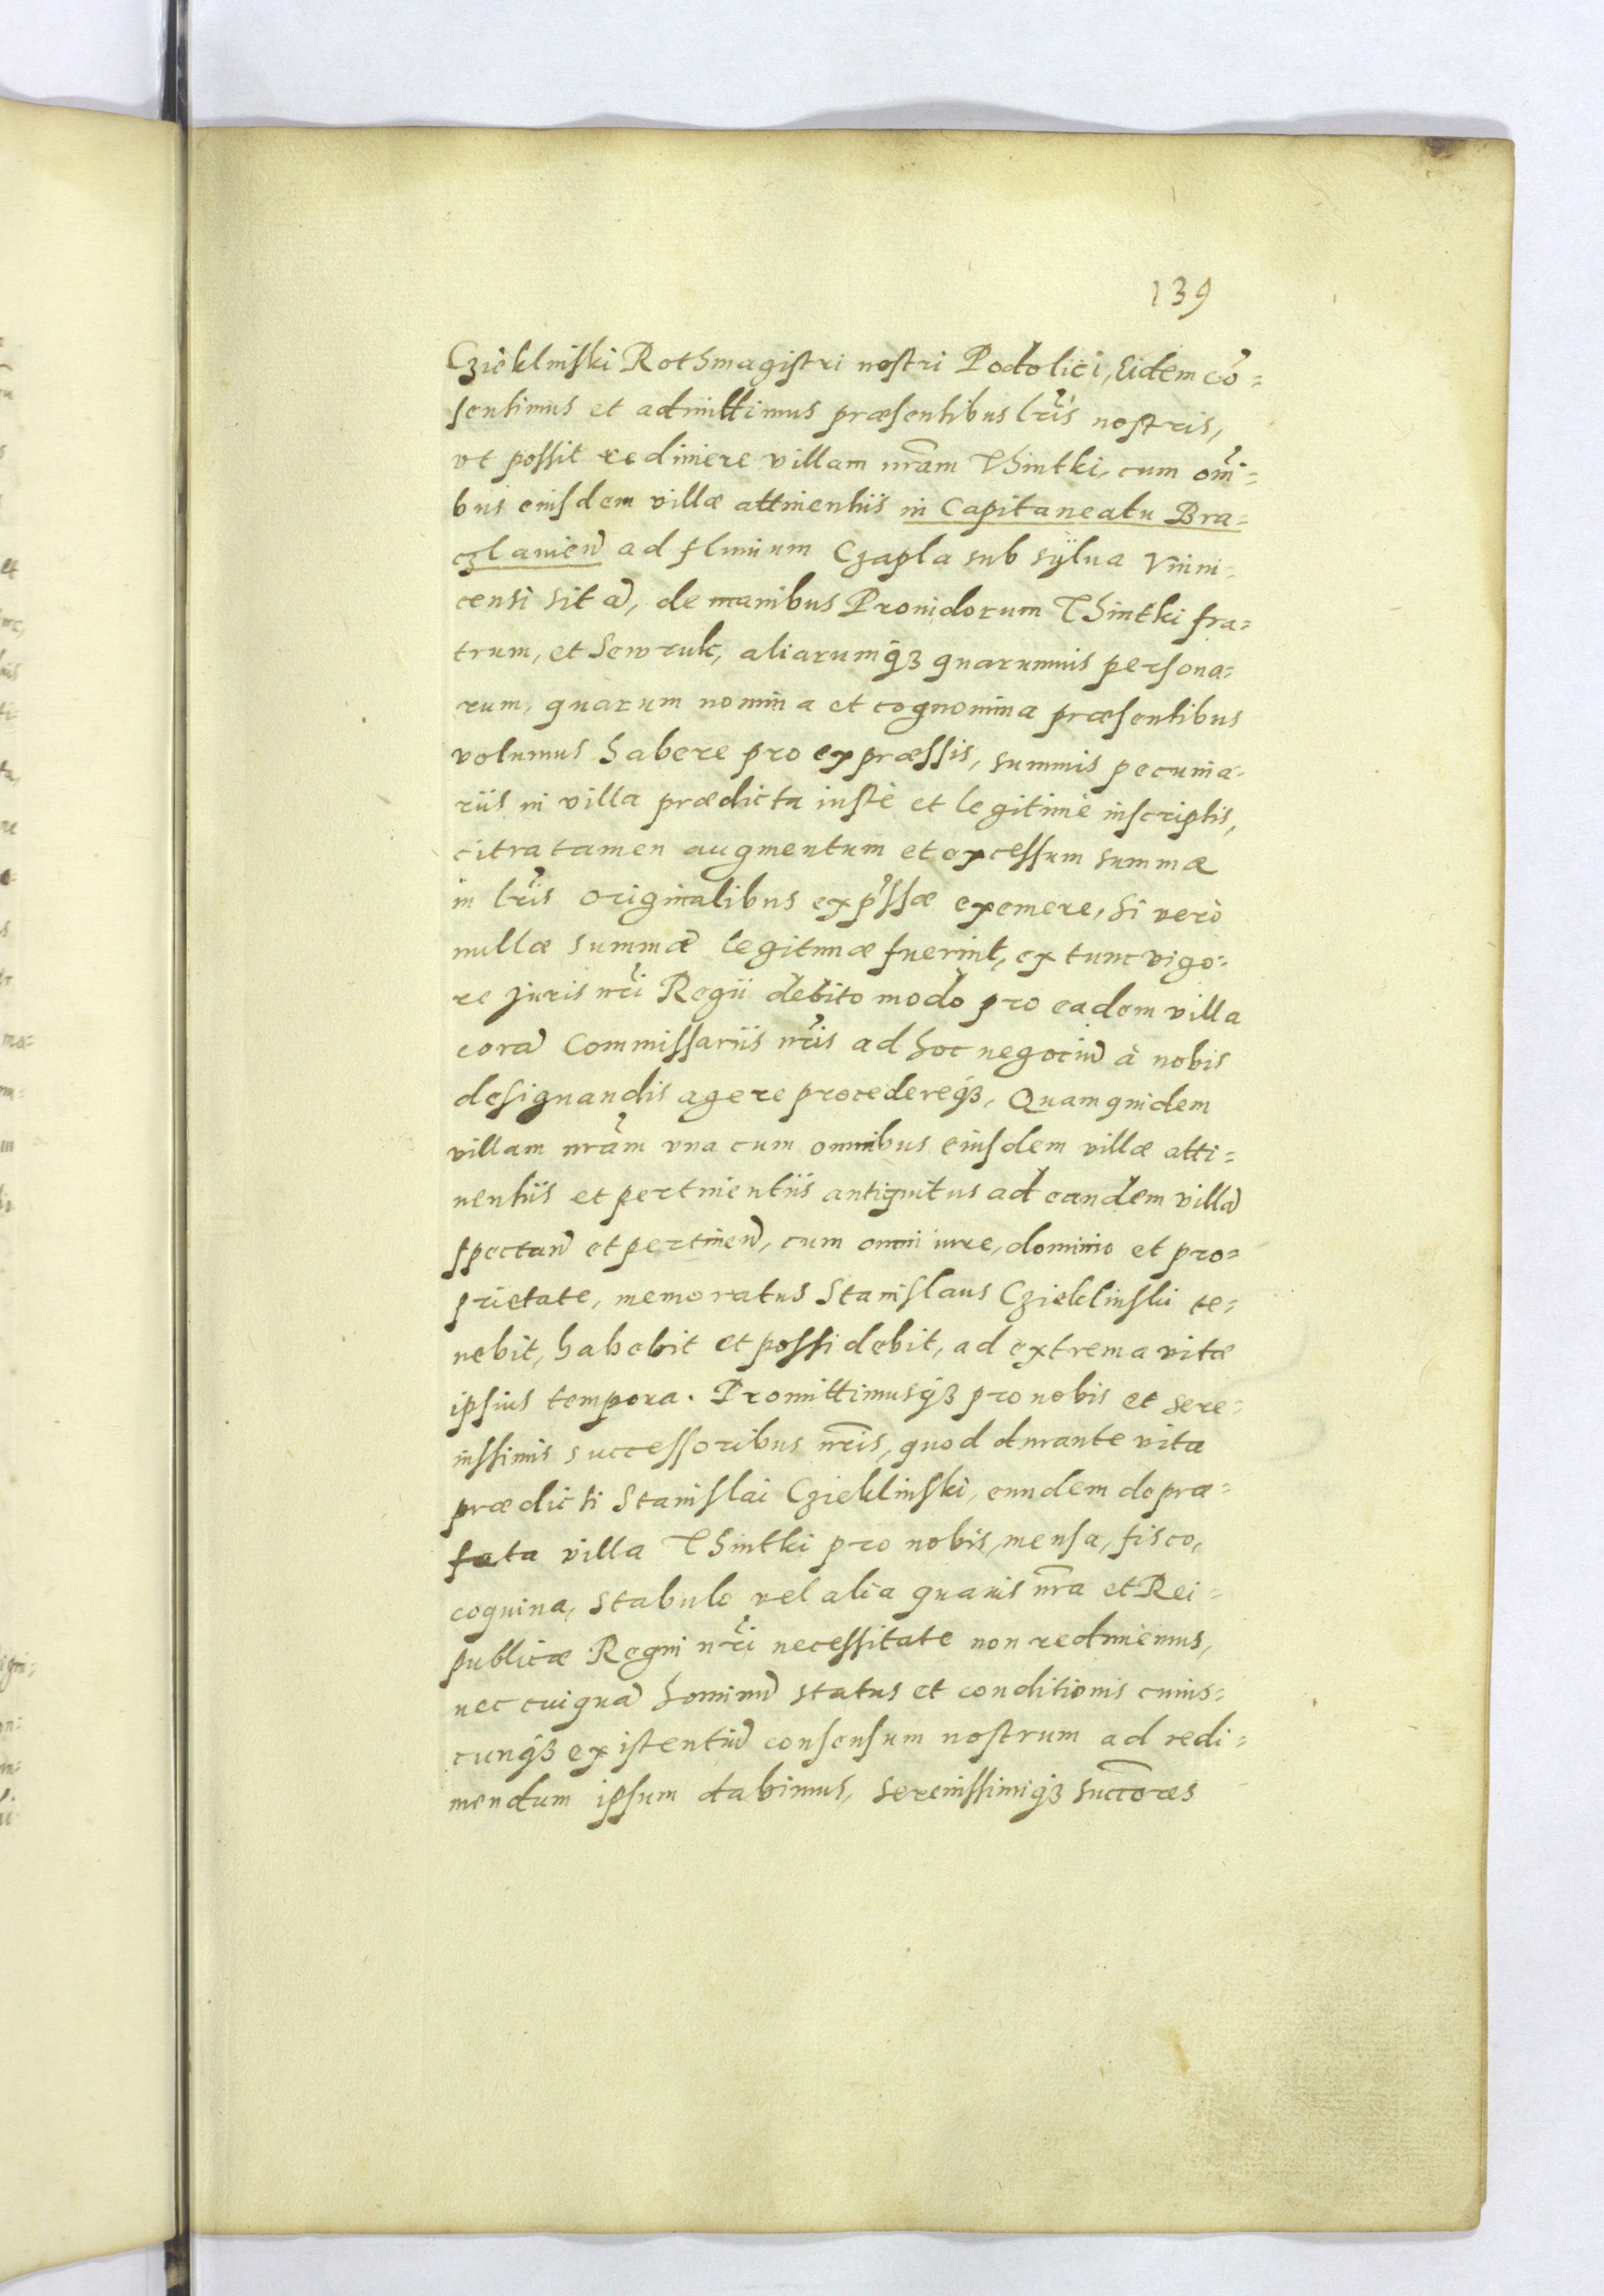 139
Czieklinski Rothmagistri nostri Podolici, Eidem cō=
sentimus et admittimus præsentibus lr̃is nostris,
vt possit redimere villam nr̃am Thintki, cum om̃i=
bus eiusdem villæ attinentiis in Capitaneatu Bra=
czlauien̄ ad fluuium Czapla sub sÿlua Vinni=
censi sitā, de manibus Prouidorum Thintki fra=
trum, et Sewruk, aliarumqȝ quarumuis persona=
rum, quarum nomina et cognomina præsentibus
volumus habere pro expræssis, summis pecunia=
riis in villa prædicta iustè et legitimè inscriptis,
citra tamen augmentum et excessum summæ
in lr̃is originalibus exp̃ssæ exemere, Si verò
nullæ summæ legitimæ fuerint, ex tunc vigo=
re Juris nr̃i Regii debito modo pro eadem villa
corā Commissariis nr̃is ad hoc negociū à nobis
designandis agere procedereqȝ, Quam quidem
villam nr̃am vna cum omnibus eiusdem villæ atti=
nentiis et pertinentiis antiquitus ad eandem villā
spectan̄ et pertinen̄, cum omni iure, dominio et pro=
prietate, memoratus Stanislaus Czieklinski te=
nebit, habebit et possidebit, ad extrema vitæ
ipsius tempora. Promittimusqȝ pro nobis et sere=
nissimis successoribus nr̃is, quod durante vita
prædicti Stanislai Czieklinski, eundem de præ=
fata villa Thintki pro nobis, mensa, fisco,
coquina, stabulo vel alia quauis nr̃a et Rei=
publicæ Regni nr̃i necessitate non redimemus,
nec cuiquā hominū status et conditionis cuius=
cunqȝ existentiū consensum nostrum ad redi=
mendum ipsum dabimus, serenissimiqȝ succ̄ores